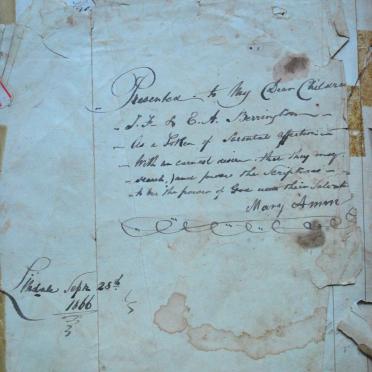 Presented to My Dear Children
J. F. & E. A. Berrington
As a Token of Parental affection
With an earnest desire that they may
search, and prove the Scriptures
to be the power of God unto their Salvat
Mary Ann
Sept 25th
1866